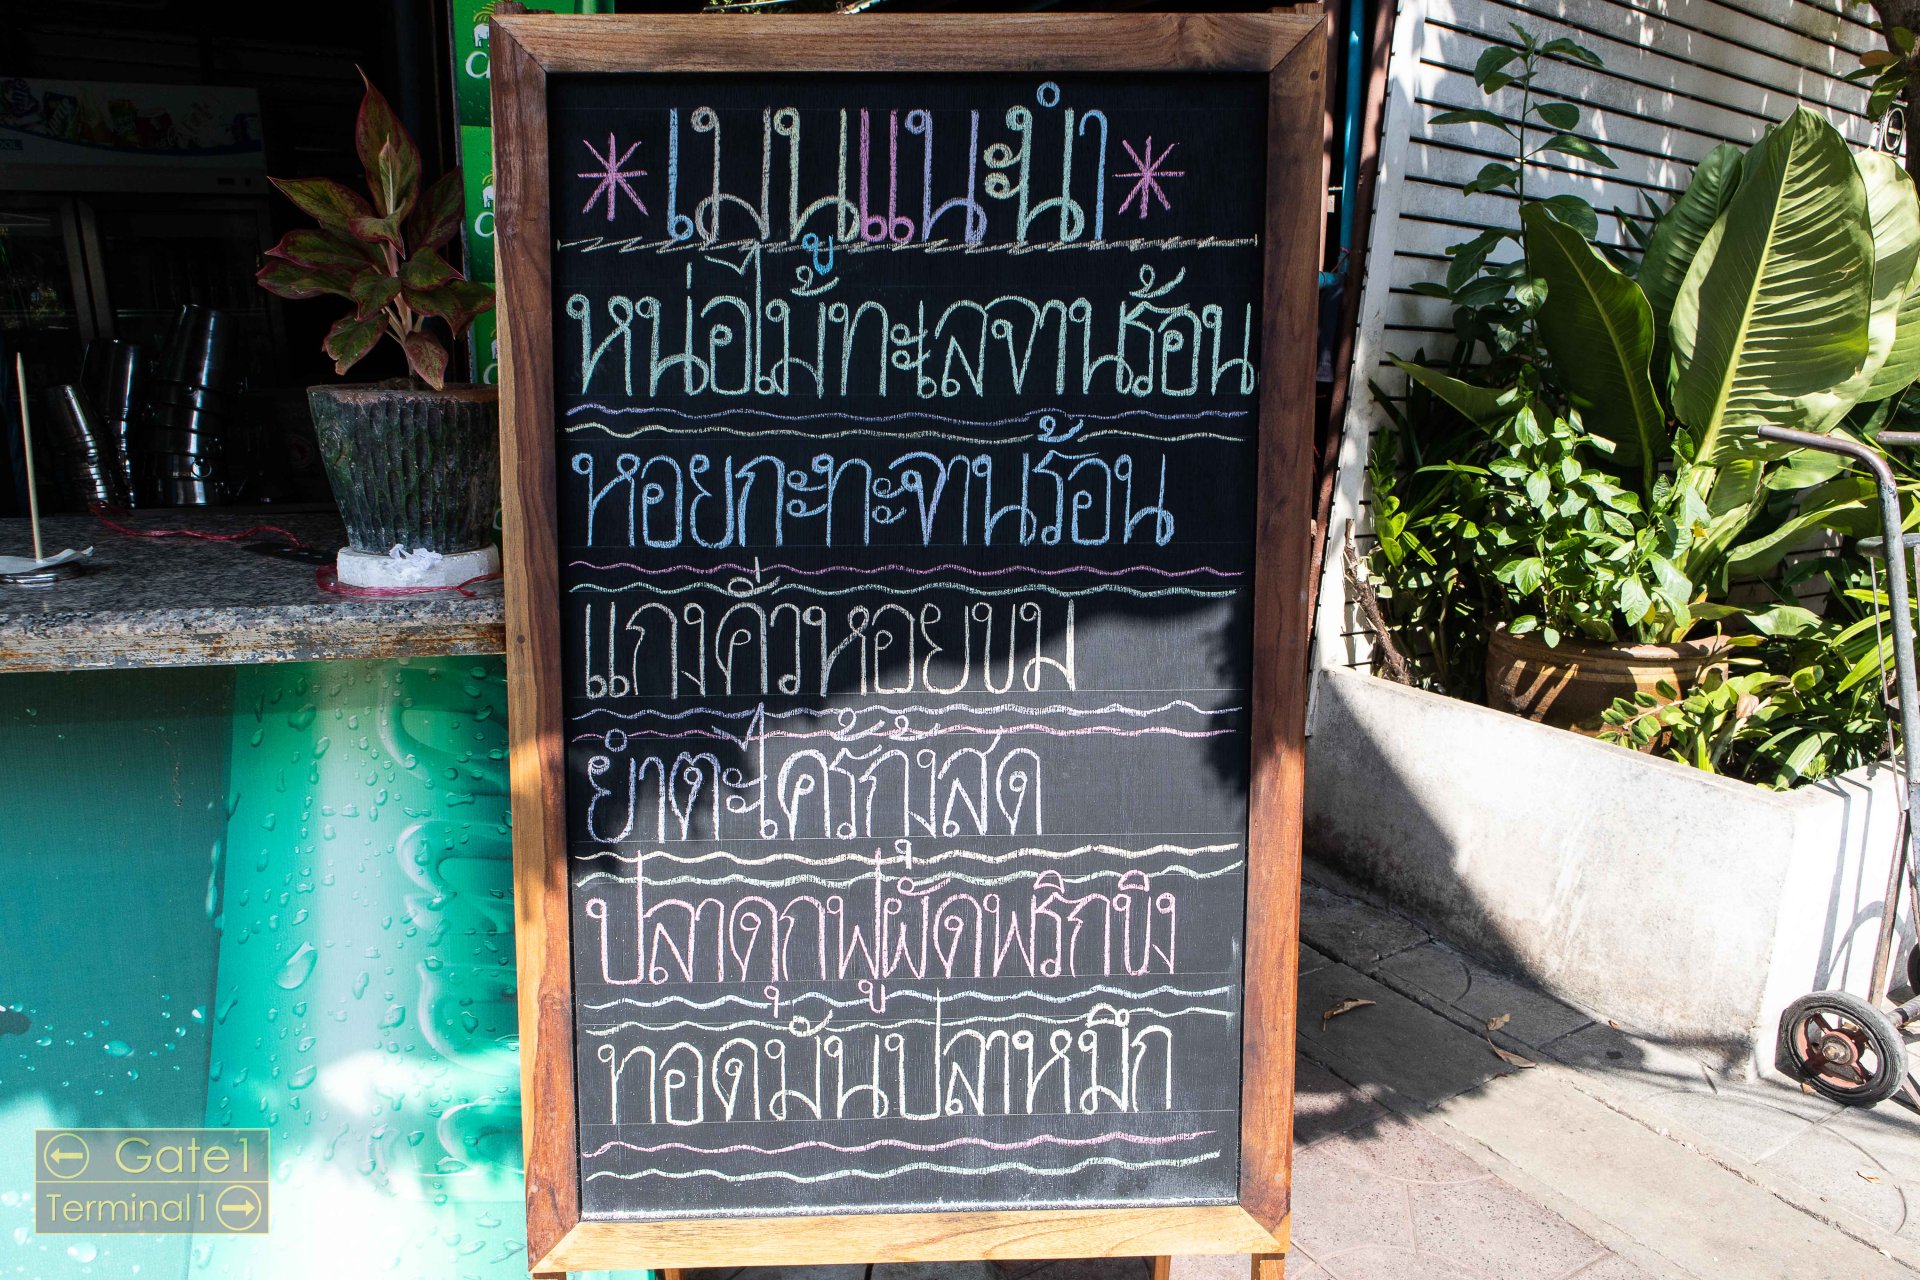 *เมนูแนะนำ*
หน่อไม้ทะเลจานร้อน
หอยกะทะจานร้อน
แกงคั่วหอยขม
ยำตะไคร้กุ้งสด
ปลาดุกฟูผัดพริกขิง
ทอดมันปลาหมึก
Gate1
Terminal1